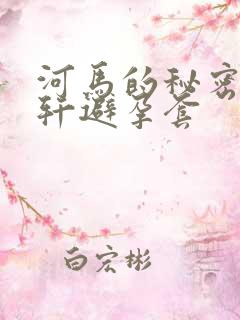 河馬的秘密
轩避孕套
白宏彬